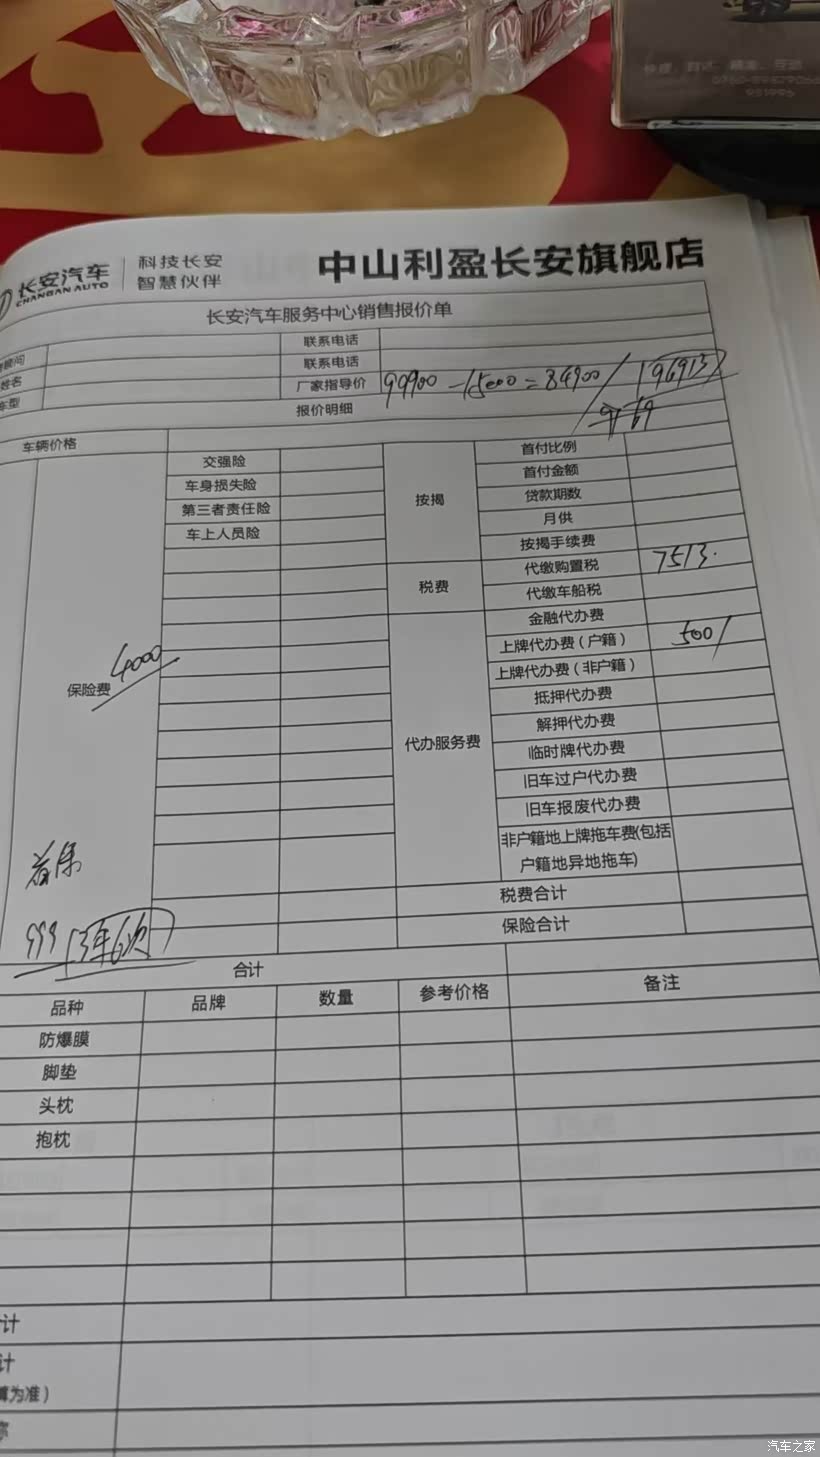 长安汽车
CHANGAN AUTO
科技长安
智慧伙伴
中山利盈长安旗舰店
长安汽车服务中心销售报价单
顾问
联系电话
姓名
联系电话
车型
厂家指导价
99900-15000=84900/96913
报价明细
车辆价格
保险费
4000
交强险
车身损失险
第三者责任险
车上人员险
按揭
首付比例
首付金额
贷款期数
月供
按揭手续费
税费
代缴购置税
7513.
代缴车船税
代办服务费
金融代办费
上牌代办费(户籍)
500/
上牌代办费(非户籍)
抵押代办费
解押代办费
临时牌代办费
旧车过户代办费
旧车报废代办费
非户籍地上牌拖车费(包括
户籍地异地拖车)
税费合计
保险合计
999 (3年6次)
合计
品种
品牌
数量
参考价格
备注
防爆膜
脚垫
头枕
抱枕
计
计
算为准)
汽车之家